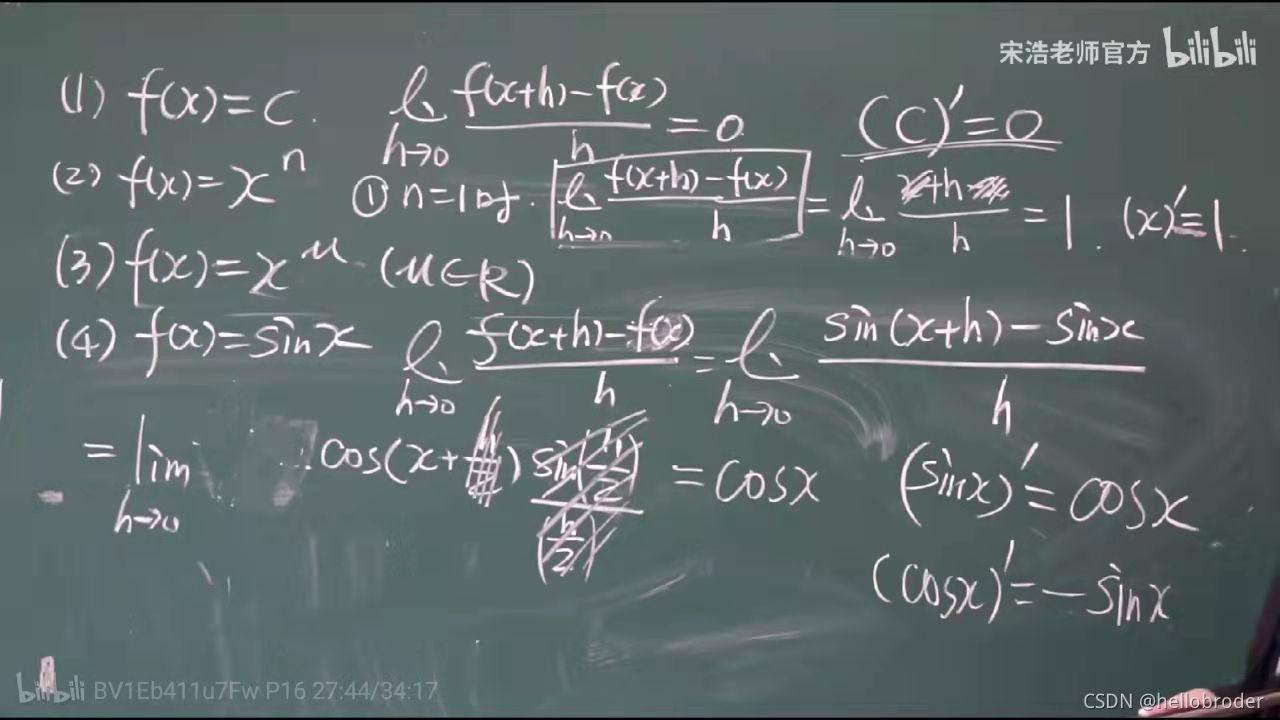 宋浩老师官方 bilibili
(1) f(x)=C. lim h→0 f(x+h)-f(x) / h = 0 (C)'=0
(2) f(x)=x^n ① n=1时. lim h→0 f(x+h)-f(x) / h = lim h→0 x+h-x / h = 1. (x)'=1.
(3) f(x)=x^μ. (μ∈R)
(4) f(x)=sinx lim h→0 f(x+h)-f(x) / h = lim h→0 sin(x+h)-sinx / h
= lim h→0 cos(x+h/2) sin(h/2) / (h/2) = cosx (sinx)'=cosx
(cosx)'=-sinx
bilibili BV1Eb411u7Fw P16 27:44/34:17
CSDN @hellobroder